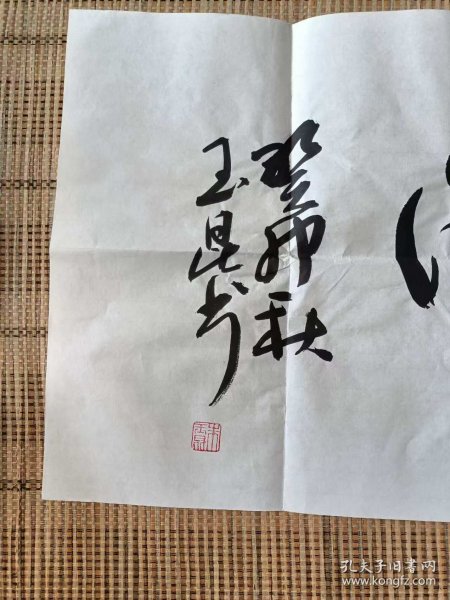 癸卯秋
玉昆书
孔夫子旧书网
www.kongfz.com